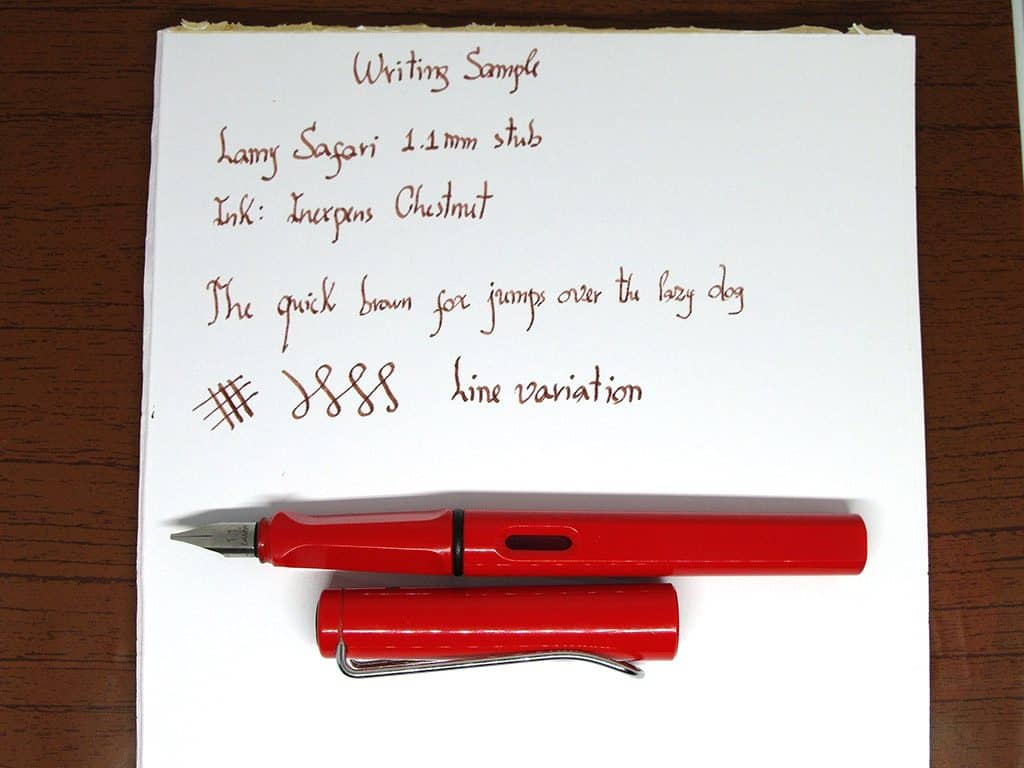 Writing Sample
Lamy Safari 1.1mm stub
Ink: Inexpens Chestnut
The quick brown fox jumps over the lazy dog
Line variation
1.1
LAMY